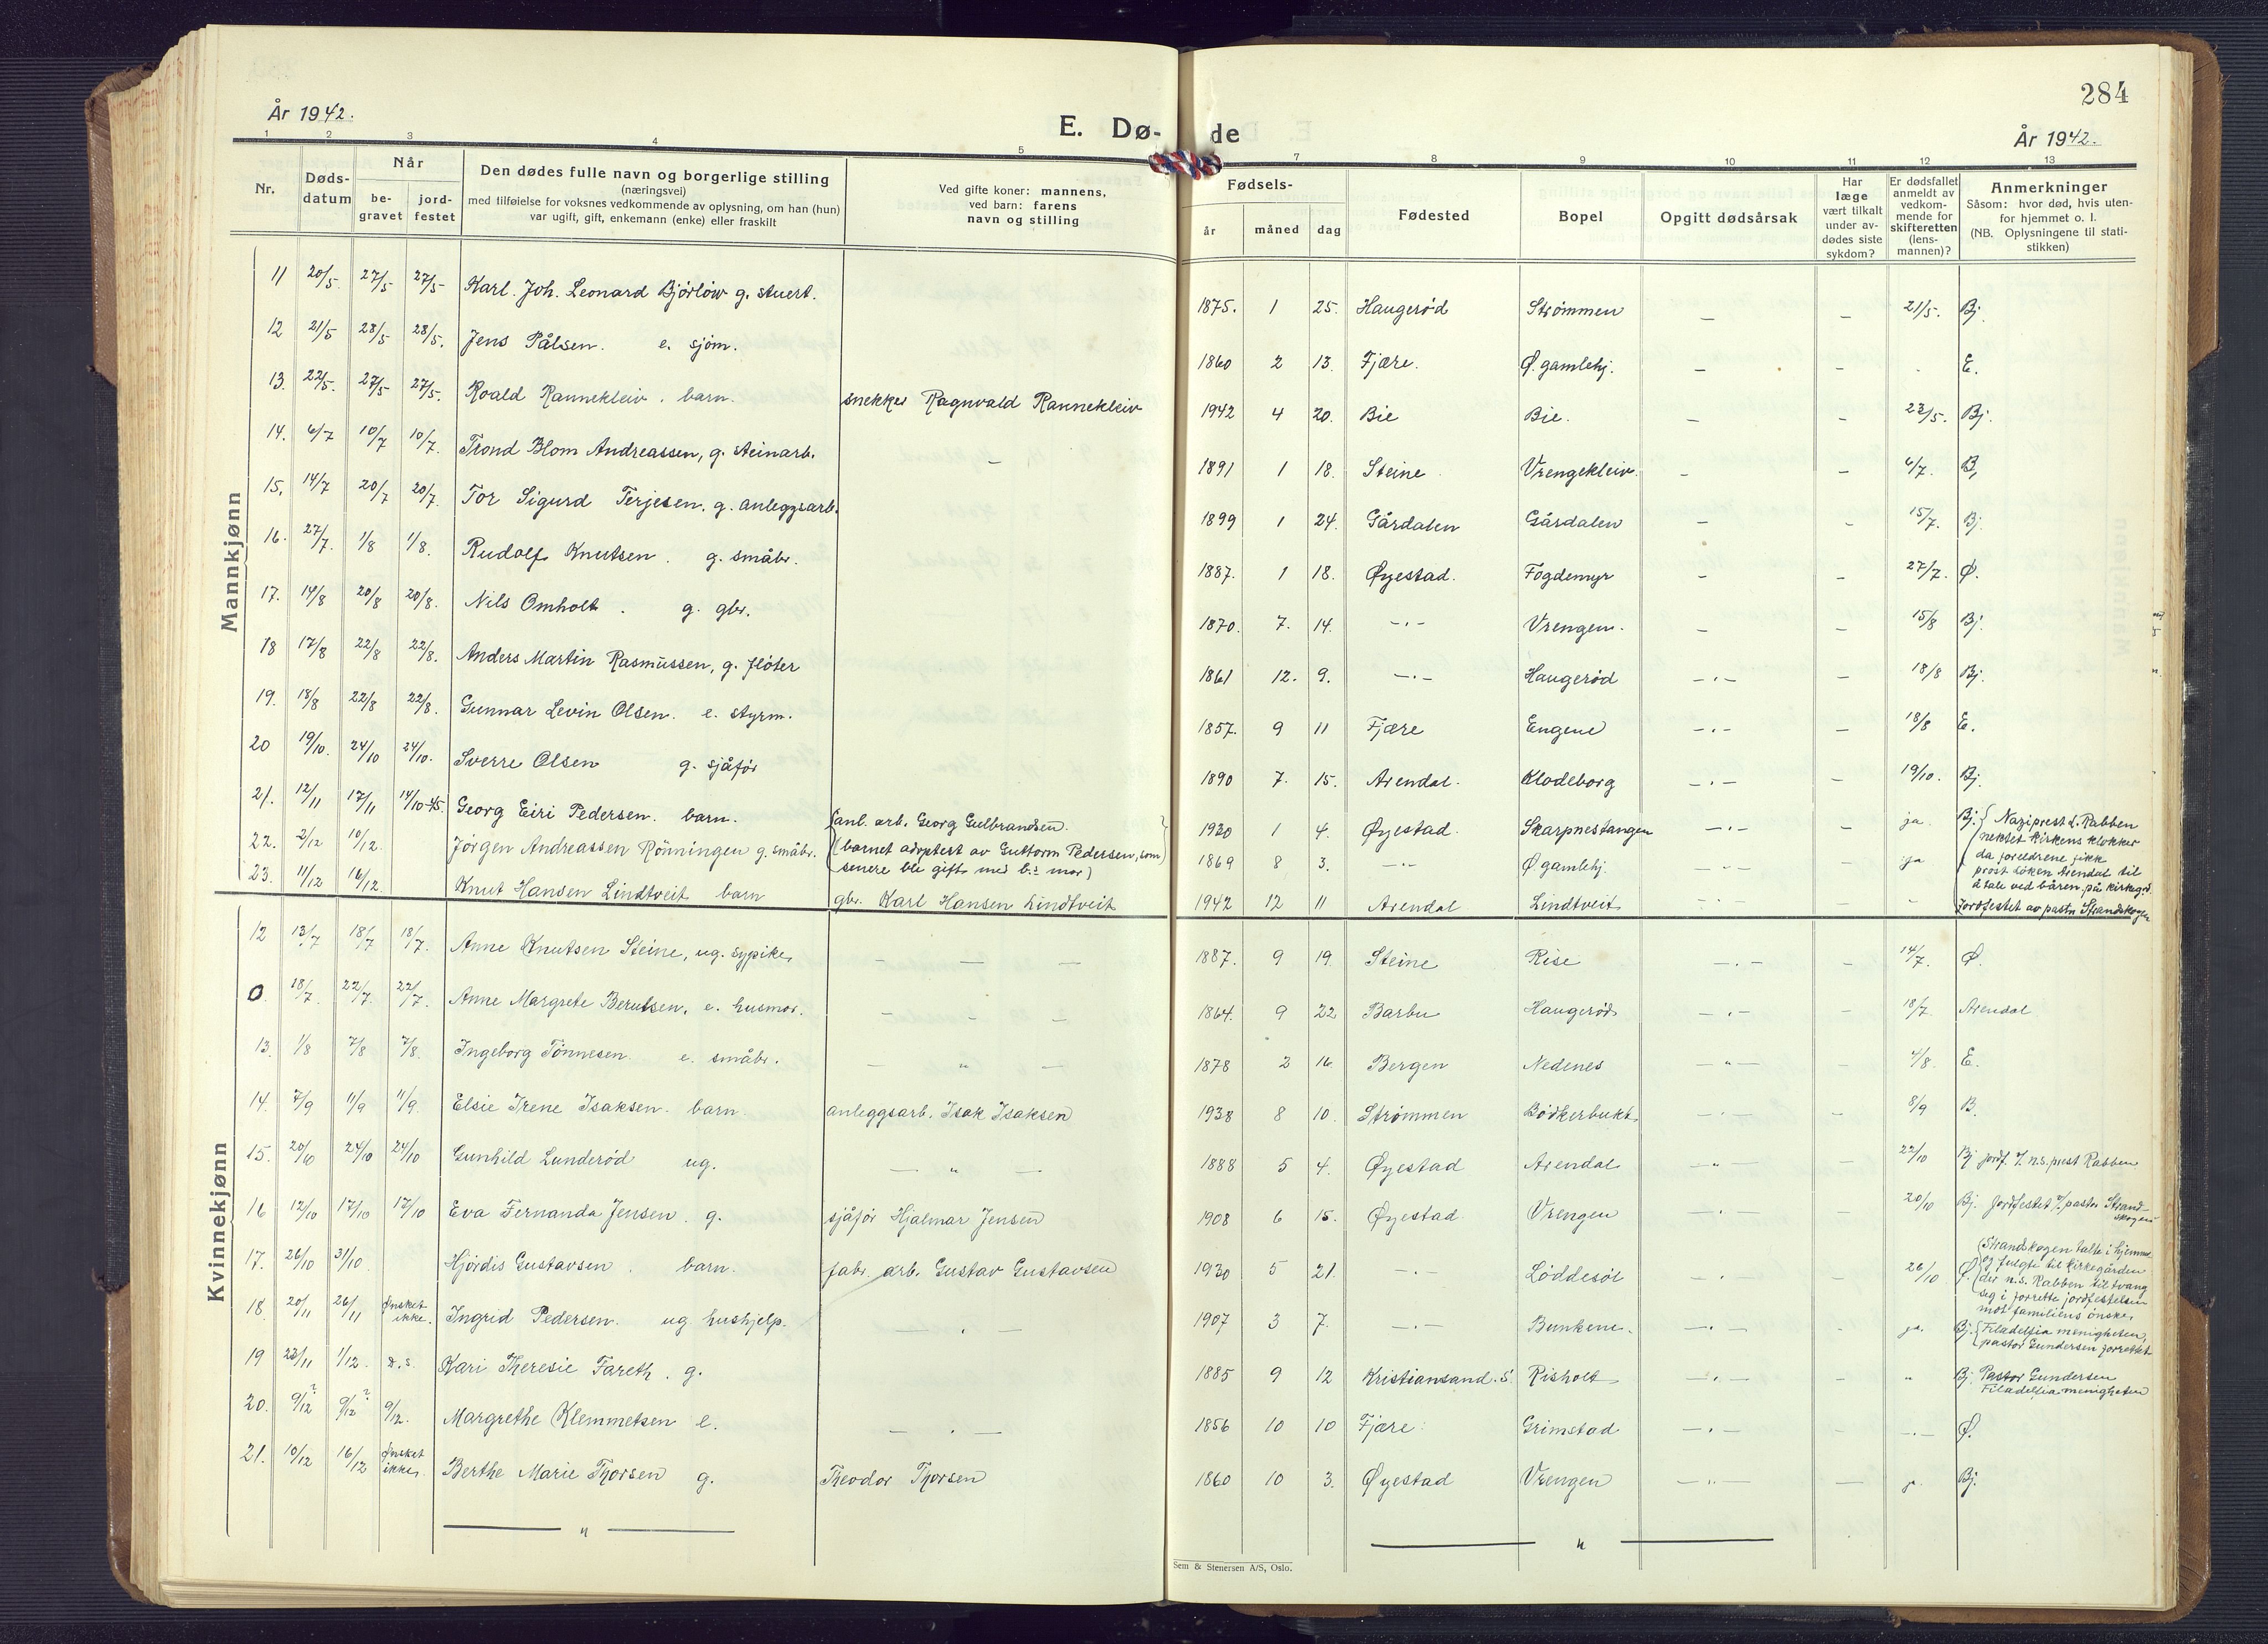 284
År 1942.
E. Dø-
de
År 1942.
1 2 3 4 5 7 8 9 10 11 12 13
Nr.
Døds-
datum
Når
be-
gravet
jord-
festet
Den dødes fulle navn og borgerlige stilling
(næringsvei)
med tilføielse for voksnes vedkommende av oplysning, om han (hun)
var ugift, gift, enkemann (enke) eller fraskilt
Ved gifte koner: mannens,
ved barn: farens
navn og stilling
Fødsels-
år måned dag
Fødested
Bopel
Opgitt dødsårsak
Har
læge
vært tilkalt
under av-
dødes siste
sykdom?
Er dødsfallet
anmeldt av
vedkom-
mende for
skifteretten
(lens-
mannen)?
Anmerkninger
Såsom: hvor død, hvis uten-
for hjemmet o. l.
(NB. Oplysningene til stati-
stikken)
Mannkjønn
11 20/5 27/5 27/5 Karl. Joh. Leonard Bjørløw g. stuert. 1875. 1 25. Haugerød Strømmen – – 21/5. Bj.
12 21/5 28/5 28/5. Jens Pålsen. e. sjøm. 1860 2 13. Fjære. Ø. gamlehj. – - . E.
13. 22/5. 27/5 27/5. Roald Rannekleiv. barn. snekker Ragnvald Rannekleiv 1942 4 20. Bie Bie. – – 23/5. Bj.
14. 6/7 10/7 10/7. Trond Blom Andreassen, g. steinarb. – 1891 1 18. Steine Vrengekleiv. – – 6/7. B,
15. 14/7 20/7 20/7. Tor Sigurd Terjesen. g. anleggsarb. 1899 1 24. Gårdalen Gårdalen – – 15/7. Bj.
16. 27/7. 1/8 1/8. Rudolf Knutsen. g. småbr. 1887. 1 18. Øyestad. Fogdemyr – – 27/7. Ø.
17. 14/8 20/8 20/8. Nils Omholt. g. gbr. 1870. 7. 14. –.– Vrengen. – – 15/8 Bj.
18 17/8 22/8 22/8. Anders Martin Rasmussen, g. fløter 1861 12. 9. –.– Haugerød –.– – 18/8 Bj.
19. 18/8 22/8 22/8. Gunnar Levin Olsen. e. styrm. 1857. 9 11 Fjære Engene –.– – 18/8 E.
20 19/10. 24/10 24/10. Sverre Olsen g. sjåfør 1890 7. 15. Arendal. Klodeborg –.– – 19/10. Bj.
21. 12/11 17/11 14/10-45. Georg Eiri Pedersen. barn. anl. arb. Georg Gulbrandsen. 1930 1 4. Øyestad. Skarpnestangen –.– ja Bj. Naziprest L. Rabben
(barnet adoptert av Guttorm Pedersen, som nektet kirkens klokker
22. 2/12 10/12. Jørgen Andreassen Rönningen g. småbr. senere ble gift med b.s mor) 1869 8 3. –.– Ø. gamlehj. –.– ja da foreldrene fikk
prost Løken Arendal til
å tale ved båren. på kirkegd.
23. 11/12 16/12. Knut Hansen Lindtveit barn gbr. Karl Hansen Lindtveit 1942 12 11 Arendal Lindtveit –.– – Jordfestet av pastor Strandskogen
Kvinnekjønn
12 13/7 18/7 18/7. Anne Knutsen Steine, ug. sypike, – – – 1887. 9 19. Steine Rise –.– – 14/7. Ø.
0. 18/7. 22/7. 22/7. Anne Margrete Berntsen, e. husmor. – – – 1864. 9 22 Barbu Haugerød –.– – 18/7. Arendal
13. 1/8 7/8 7/8. Ingeborg Tönnesen. e. småbr. – " – 1878 2 16. Bergen Nedenes –"– – 4/8. E.
14. 7/9 11/9 11/9. Elsie Irene Isaksen. barn. anleggsarb. Isak Isaksen 1938 8 10. Strømmen Bødkerbukt. –.– – 8/9 B.
15. 20/10 24/10 24/10 Gunhild Lunderød ug. – " – 1888 5 4. Øyestad Arendal –"– – 22/10 Bj jordf. v. n.s. prest Rabben
16 12/10 17/10 17/10 Eva Fernanda Jensen. g. sjåfør Hjalmar Jensen 1908 6 15. Øyestad. Vrengen –.– – 20/10 Bj. Jordfestet v/ pastor Strand-
skogen
17. 26/10 31/10. Hjördis Gustavsen. barn. fabr. arb. Gustav Gustavsen 1930 5 21. –.– Løddesøl –.– – 26/10 Ø. Strandskogen talte i hjemme
og fulgte til kirkegården
der n.s. Rabben tiltvang
seg i forrette jordfestelsen
mot familiens ønske.
18. 20/11 26/11 Ønsket ikke. Ingrid Pedersen. ug hushjelp. – . – 1907 3 7. –.– Bunkene. –.– - ja. Bj. Filadelfia menigheten,
pastor Gundersen forrettet
19 23/11 1/12. d.s. Kari Theresie Fareth. g. 1885 9 12 Kristiansand. S. Risholt –.– - " Bj. Pastor Gundersen
Filadelfia menigheten
20. 9/12? 9/12? 9/12. Margrethe Klemmetsen e. – . – 1856 10 10 Fjære. Grimstad –.– - –.– Ø.
21. 10/12 16/12 Ønsket ikke. Berthe Marie Thorsen g. Theodor Thorsen 1860 10 3. Øyestad Vrengen –.– – ja. Bj.
— " —
— " —
Sem & Stenersen A/S, Oslo.